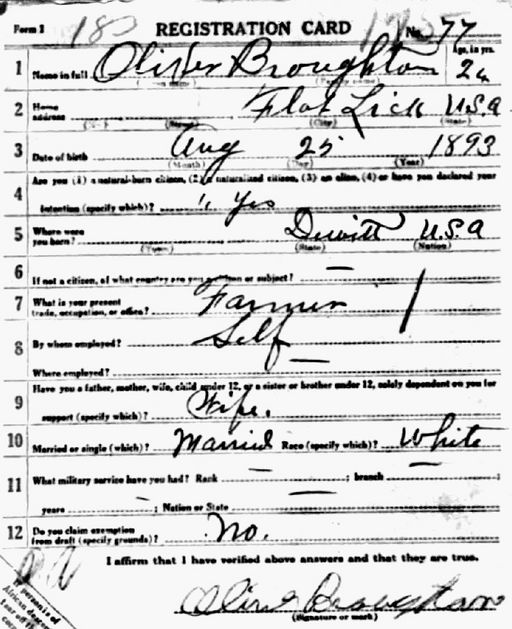 Form 1 183 REGISTRATION CARD No. 77
1 Name in full Oliver Broughton Age, in yrs. 24
(Family name)
2 Home address Flat Lick U.S.A
(No.) (Street) (City) (State)
3 Date of birth Aug 25 1893
(Month) (Day) (Year)
4 Are you (1) a natural-born citizen, (2) a naturalized citizen, (3) an alien, (4) or have you declared your
intention (specify which)? " Yes
5 Where were you born? Dewitt U.S.A
(Town) (State) (Nation)
6 If not a citizen, of what country are you a citizen or subject? —
7 What is your present trade, occupation, or office? Farmer
8 By whom employed? Self
Where employed? —
9 Have you a father, mother, wife, child under 12, or a sister or brother under 12, solely dependent on you for
support (specify which)? Wife.
10 Married or single (which)? Married Race (specify which)? White
11 What military service have you had? Rank — ; branch — ;
years — ; Nation or State —
12 Do you claim exemption from draft (specify grounds)? No.
I affirm that I have verified above answers and that they are true.
Oliver Broughton
(Signature or mark)
If person is of
African descent
tear off